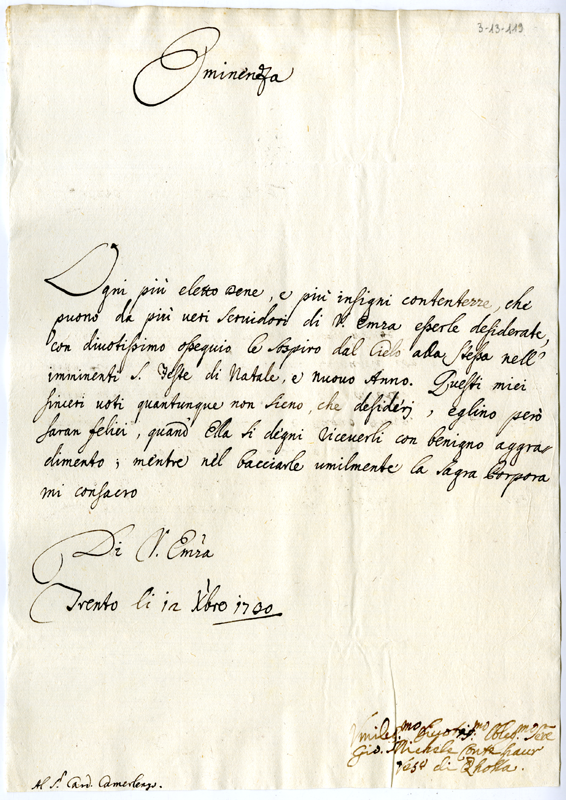 3-13-119
Eminenza
Ogni più eletto bene, e più insigni contentezze, che
puono da più veri Servidori di V. Emza esserle desiderate,
con divotissimo ossequio le sospiro dal Cielo alla Stessa nell'
imminenti S. Feste di Natale, e nuovo Anno. Questi miei
sinceri voti quantunque non sieno, che desiderj, eglino però
saran felici, quand Ella si degni riceverli con benigno aggra
dimento; mentre nel bacciarle umilmente la Sagra Porpora
mi consacro
Di V. Emza
Trento li 12 Xbre
Gio. Michele
di
Al Sr. Card. Camerlengo.